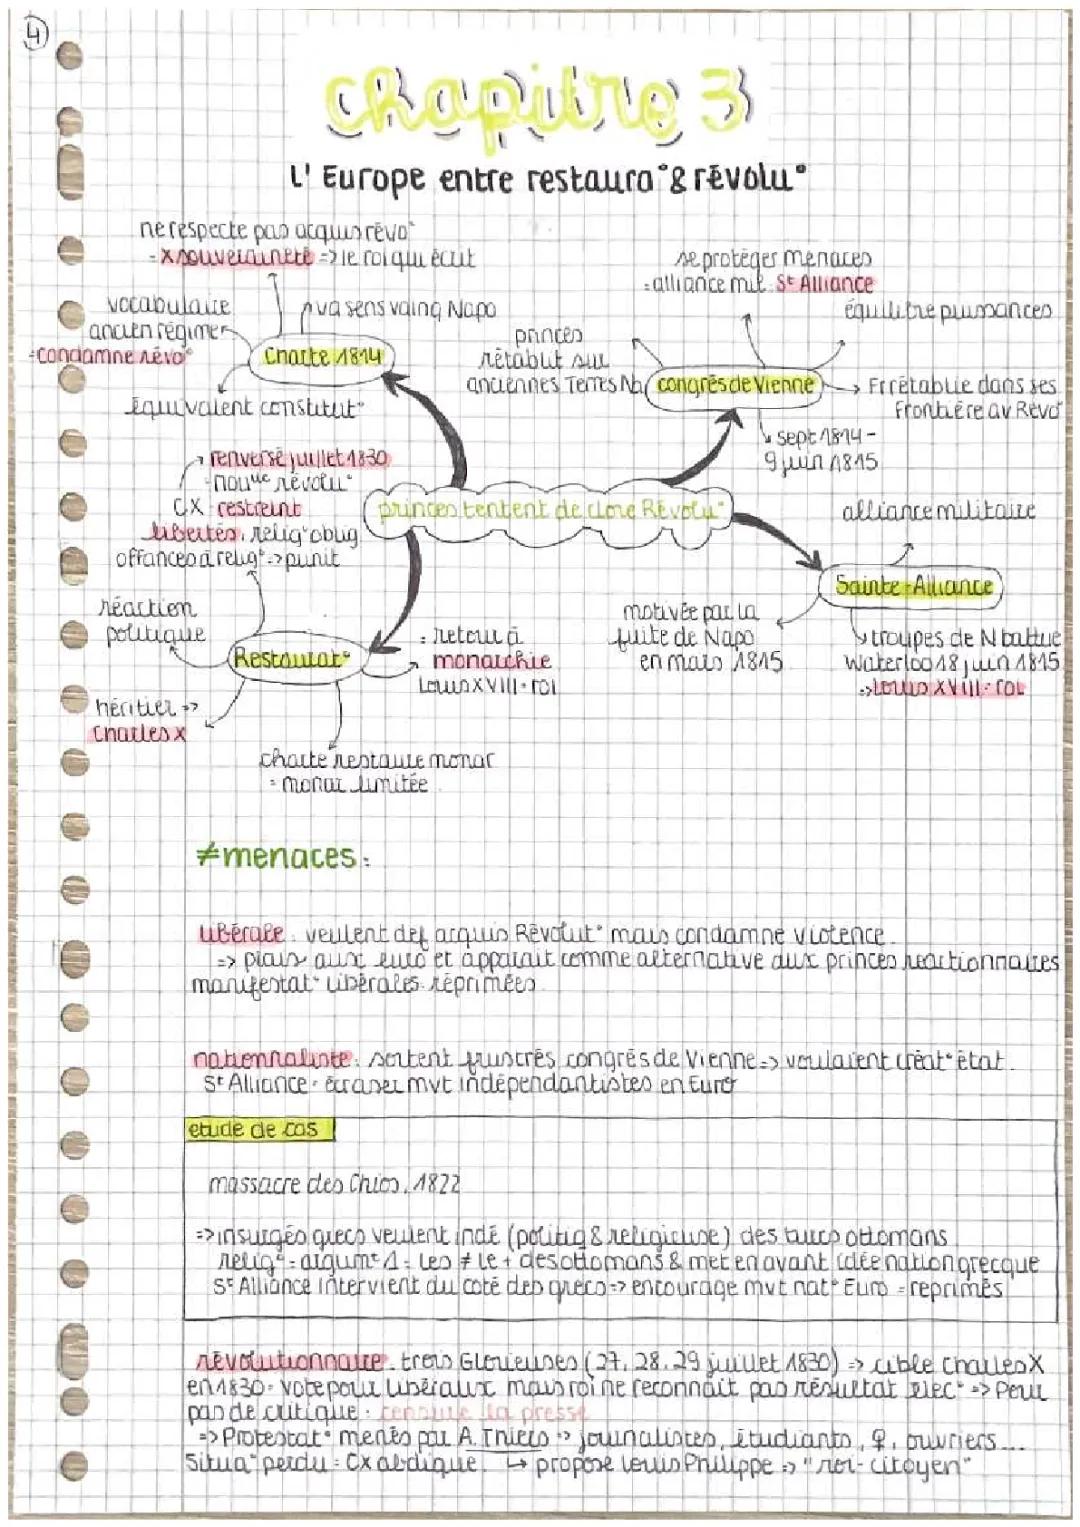 4
Chapitre 3
L'Europe entre restaura° & révolu°
ne respecte pas acquis révo°
- X souveraineté => le roi qui écrit
vocabulaire
ancien régime
=condamne révo°
va sens vainq Napo
Charte 1814
équivalent constitut°
se protéger menaces
=alliance mil. St Alliance
équilibre puissances
princes
rétablit sur
anciennes Terres
congrès de Vienne
Fr rétablie dans ses
Frontière av Révo°
sept 1814 -
9 juin 1815
renversé juillet 1830
= nouve révolu°
CX : restreint
libertés, relig° oblig
offances à relig° => punit
princes tentent de clore Révolu°
alliance militaire
Sainte-Alliance
motivée par la
fuite de Napo
en mars 1815
troupes de N battue
Waterloo 18 juin 1815
=> Louis XVIII = roi
réaction
politique
Restaurat°
: retour à
monarchie
Louis XVIII = roi
héritier =>
Charles X
charte restaure monar
= monar limitée
≠ menaces :
libérale : veulent def acquis Révolut° mais condamne violence
=> plais aux euro et apparait comme alternative aux princes réactionnaires
manifestat° libérales réprimées
nationnaliste : sortent frustrés congrès de Vienne => voulaient créat° état.
St Alliance = écraser mvt indépendantistes en Euro
etude de cas
massacre des Chios, 1822
=> insurgés grecs veulent indé (politiq & religieuse) des turcs ottomans
relig° = argumt 1 = les ≠ le + des ottomans & met en avant idée nation grecque
St Alliance intervient du coté des grecs => encourage mvt nat° Euro = réprimés
révolutionnaire : trois Glorieuses (27, 28, 29 juillet 1830) => cible Charles X
en 1830 = vote pour libéraux mais roi ne reconnait pas résultat élec° => Peur
pas de critique : censure la presse
=> Protestat° menés par A. Thiers => journalistes, étudiants, ♀, ouvriers...
Situa° perdu = Cx abdique. ↳ propose Louis Philippe => "roi-citoyen"